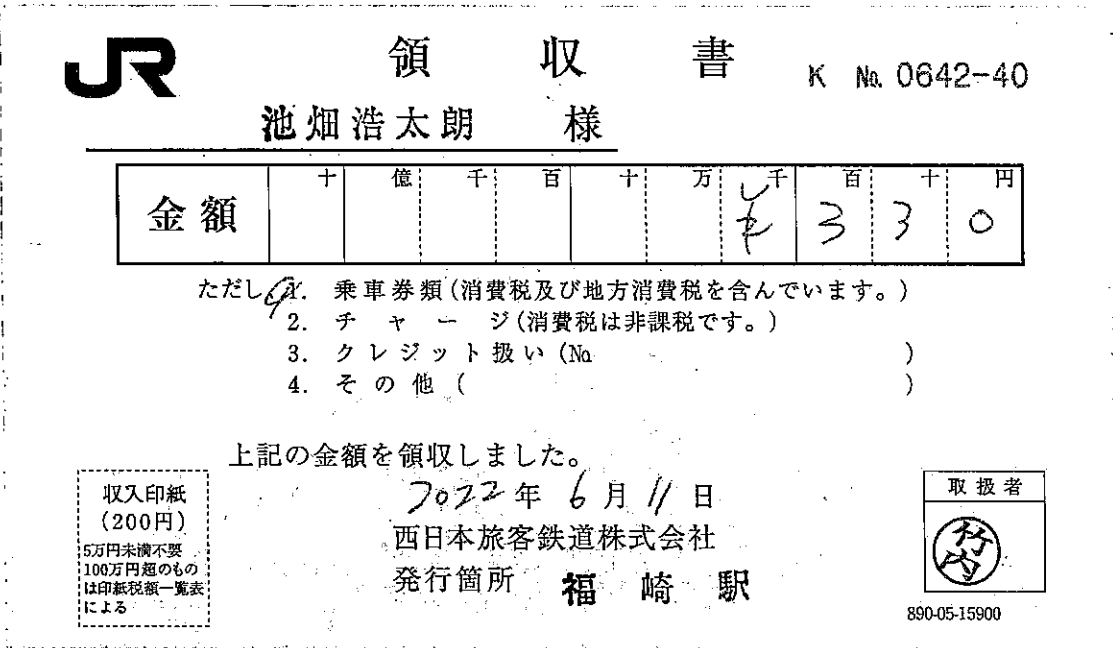 JR 領収書 K No. 0642-40
池畑浩太朗 様
金額 十 億 千 百 十 万 千 百 十 円
¥ 3 3 0
ただし 1. 乗車券類(消費税及び地方消費税を含んでいます。)
2. チャージ(消費税は非課税です。)
3. クレジット扱い(No )
4. その他( )
上記の金額を領収しました。
2022年 6月 11日
西日本旅客鉄道株式会社
発行箇所 福崎駅
収入印紙
(200円)
5万円未満不要
100万円超のもの
は印紙税額一覧表
による
取扱者
竹内
890-05-15900